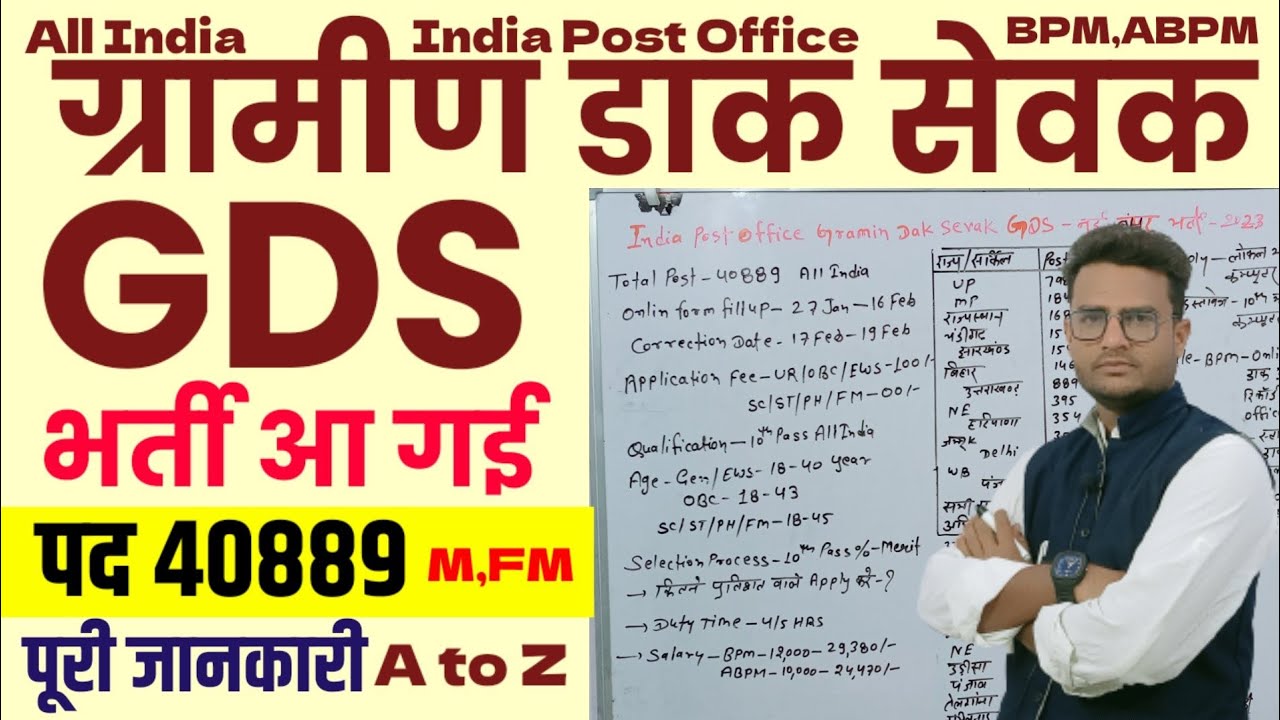 All India India Post Office BPM,ABPM
ग्रामीण डाक सेवक
GDS
भर्ती आ गई
पद 40889 M,FM
पूरी जानकारी A to Z
India Post office Gramin Dak Sevak GDS - नई भर्ती - 2023
Total Post - 40889 All India
Onlin form fill up - 27 Jan - 16 Feb
Correction Date - 17 Feb - 19 Feb
Application Fee - UR/OBC/EWS - 100/-
SC/ST/PH/FM - 00/-
Qualification - 10th Pass All India
Age - Gen/EWS - 18-40 year
OBC - 18-43
SC/ST/PH/FM - 18-45
Selection Process - 10th Pass % - Merit
→ कितने प्रतिशत वाले Apply करे - ?
→ Duty Time - 4/5 HRS
→ Salary - BPM - 12,000 - 29,380/-
ABPM - 10,000 - 24,470/-
राज्य/सर्किल Post
UP
MP
राजस्थान
चंडीगढ़
झारखंड
बिहार
उत्तराखंड 889
NE 395
हरियाणा 354
Delhi
WB
NE
उड़ीसा
पंजाब
तेलंगाना
लोकल
कंप्यूटर
10th
BPM - Onl
डाक
रिकॉर्ड
offic